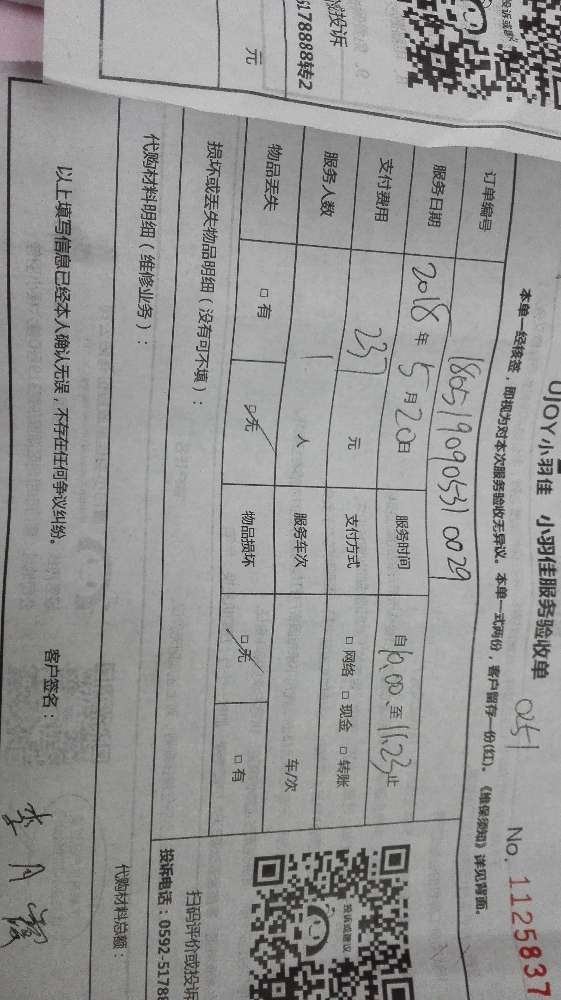 投诉
5178888转2
元
投诉或建议
UJOY小羽佳 小羽佳服务验收单 051
No. 1125837
本单一经接签，即视为对本次服务验收无异议。本单一式两份，客户留存一份(红)。《维保须知》详见背面。
订单编号 1805190905310029
服务日期 2018年5月20日 服务时间 自10:00至11:23止
支付费用 237元 支付方式 □网络 □现金 □转账
服务人数 1人 服务车次 车/次
物品丢失 □有 □无 物品损坏 □无 □有
损坏或丢失物品明细（没有可不填）：
代购材料明细（维修业务）：
代购材料总额：
投诉或建议
扫码评价或投诉
投诉电话：0592-51788
以上填写信息已经本人确认无误，不存在任何争议纠纷。
客户签名：